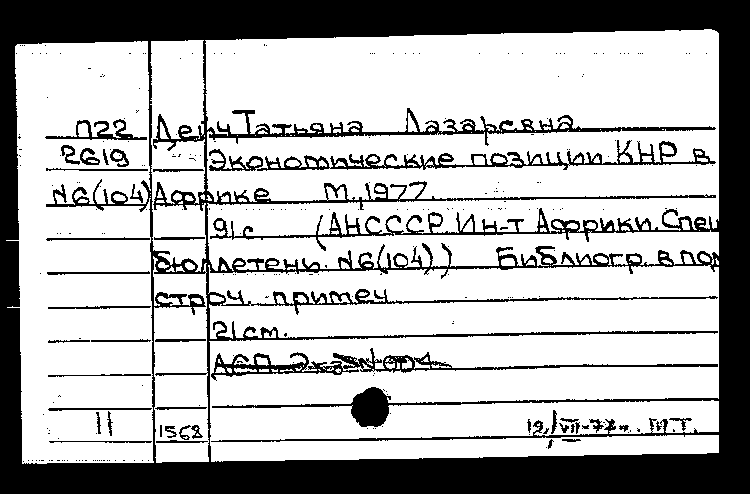 П22 Дейч, Татьяна Лазаревна
2619 Экономические позиции КНР в
N6(104) Африке М., 1977.
91с. (АНСССР Ин-т Африки. Спец
бюллетень. N6(104)) Библиогр. в под
строч. примеч
21см.
11 1568 19/VII-77г. М.Т.